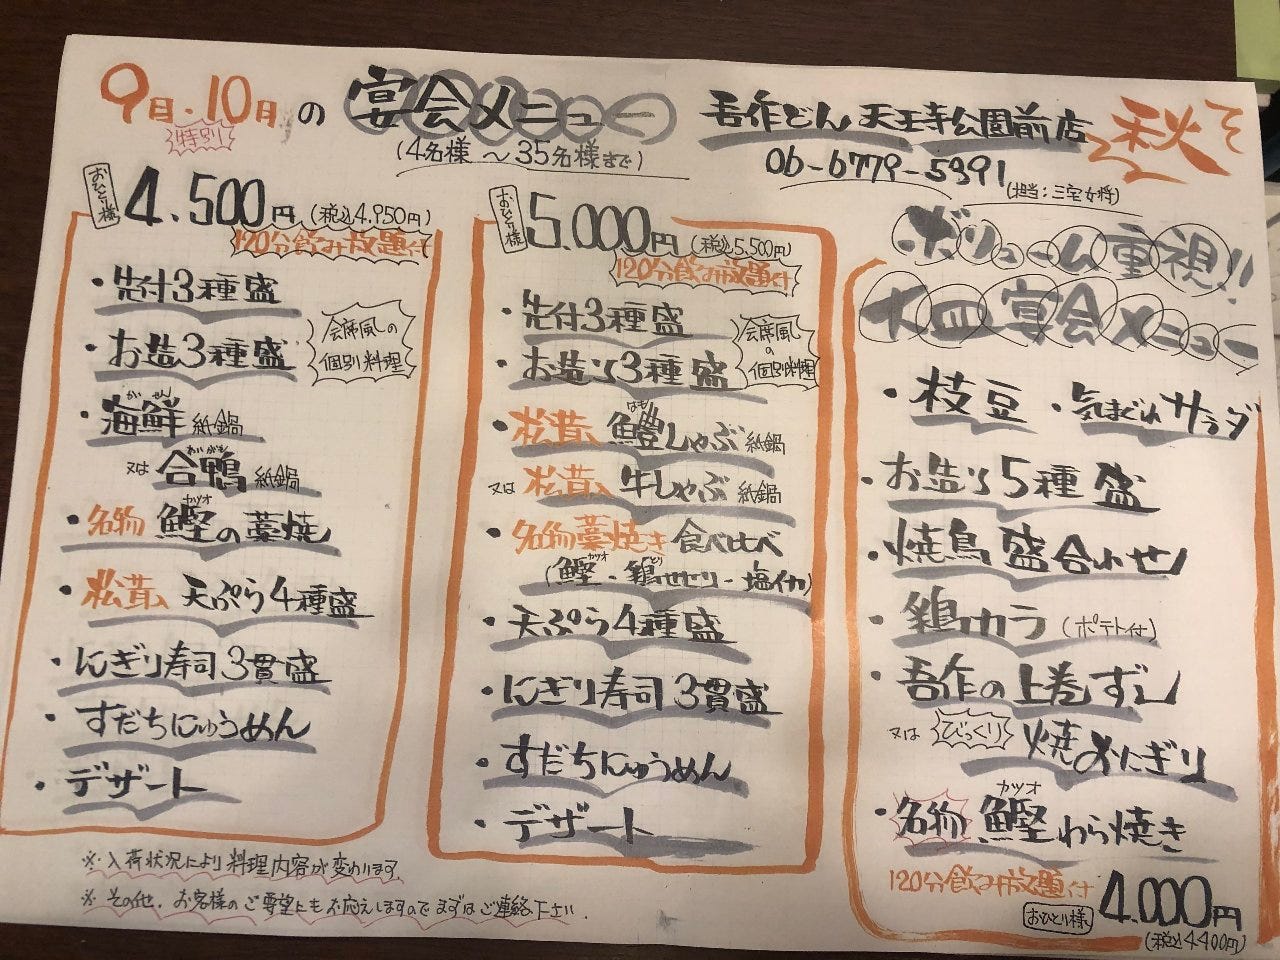 9月・10月の宴会メニュー
特別
(4名様〜35名様まで)
吾作どん 天王寺公園前店
06-6779-5391
(担当:三宅女将)
秋
おひとり様
4.500円 (税込4.950円)
120分飲み放題付
・先付3種盛
・お造り3種盛
会席風の
個別料理
かいせん
・海鮮 紙鍋
あいがも
又は 合鴨 紙鍋
カツオ
・名物 鰹の藁焼
・松茸入 天ぷら4種盛
・にぎり寿司3貫盛
・すだちにゅうめん
・デザート
おひとり様
5.000円 (税込5.500円)
120分飲み放題付
・先付3種盛
・お造り3種盛
会席風
の
個別料理
はも
・松茸入 鱧しゃぶ 紙鍋
又は 松茸入 牛しゃぶ 紙鍋
・名物藁焼き 食べ比べ
カツオ
(鰹・鶏せせり・塩イカ)
・天ぷら4種盛
・にぎり寿司 3貫盛
・すだちにゅうめん
・デザート
ボリューム重視!!
大皿宴会メニュー
・枝豆 ・気まぐれサラダ
・お造り5種盛
・焼鳥盛合わせ
・鶏カラ (ポテト付)
・吾作の上巻ずし
又は びっくり 焼おにぎり
カツオ
・名物 鰹わら焼き
120分飲み放題付
おひとり様 4.000円
(税込4400円)
※入荷状況により料理内容が変わります。
※その他、お客様のご要望にもお応えしますのでまずはご連絡下さい。